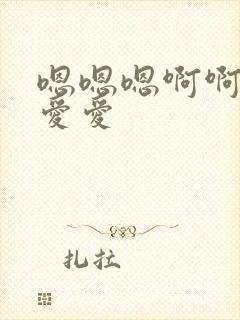 嗯嗯嗯啊啊
爱爱
扎拉